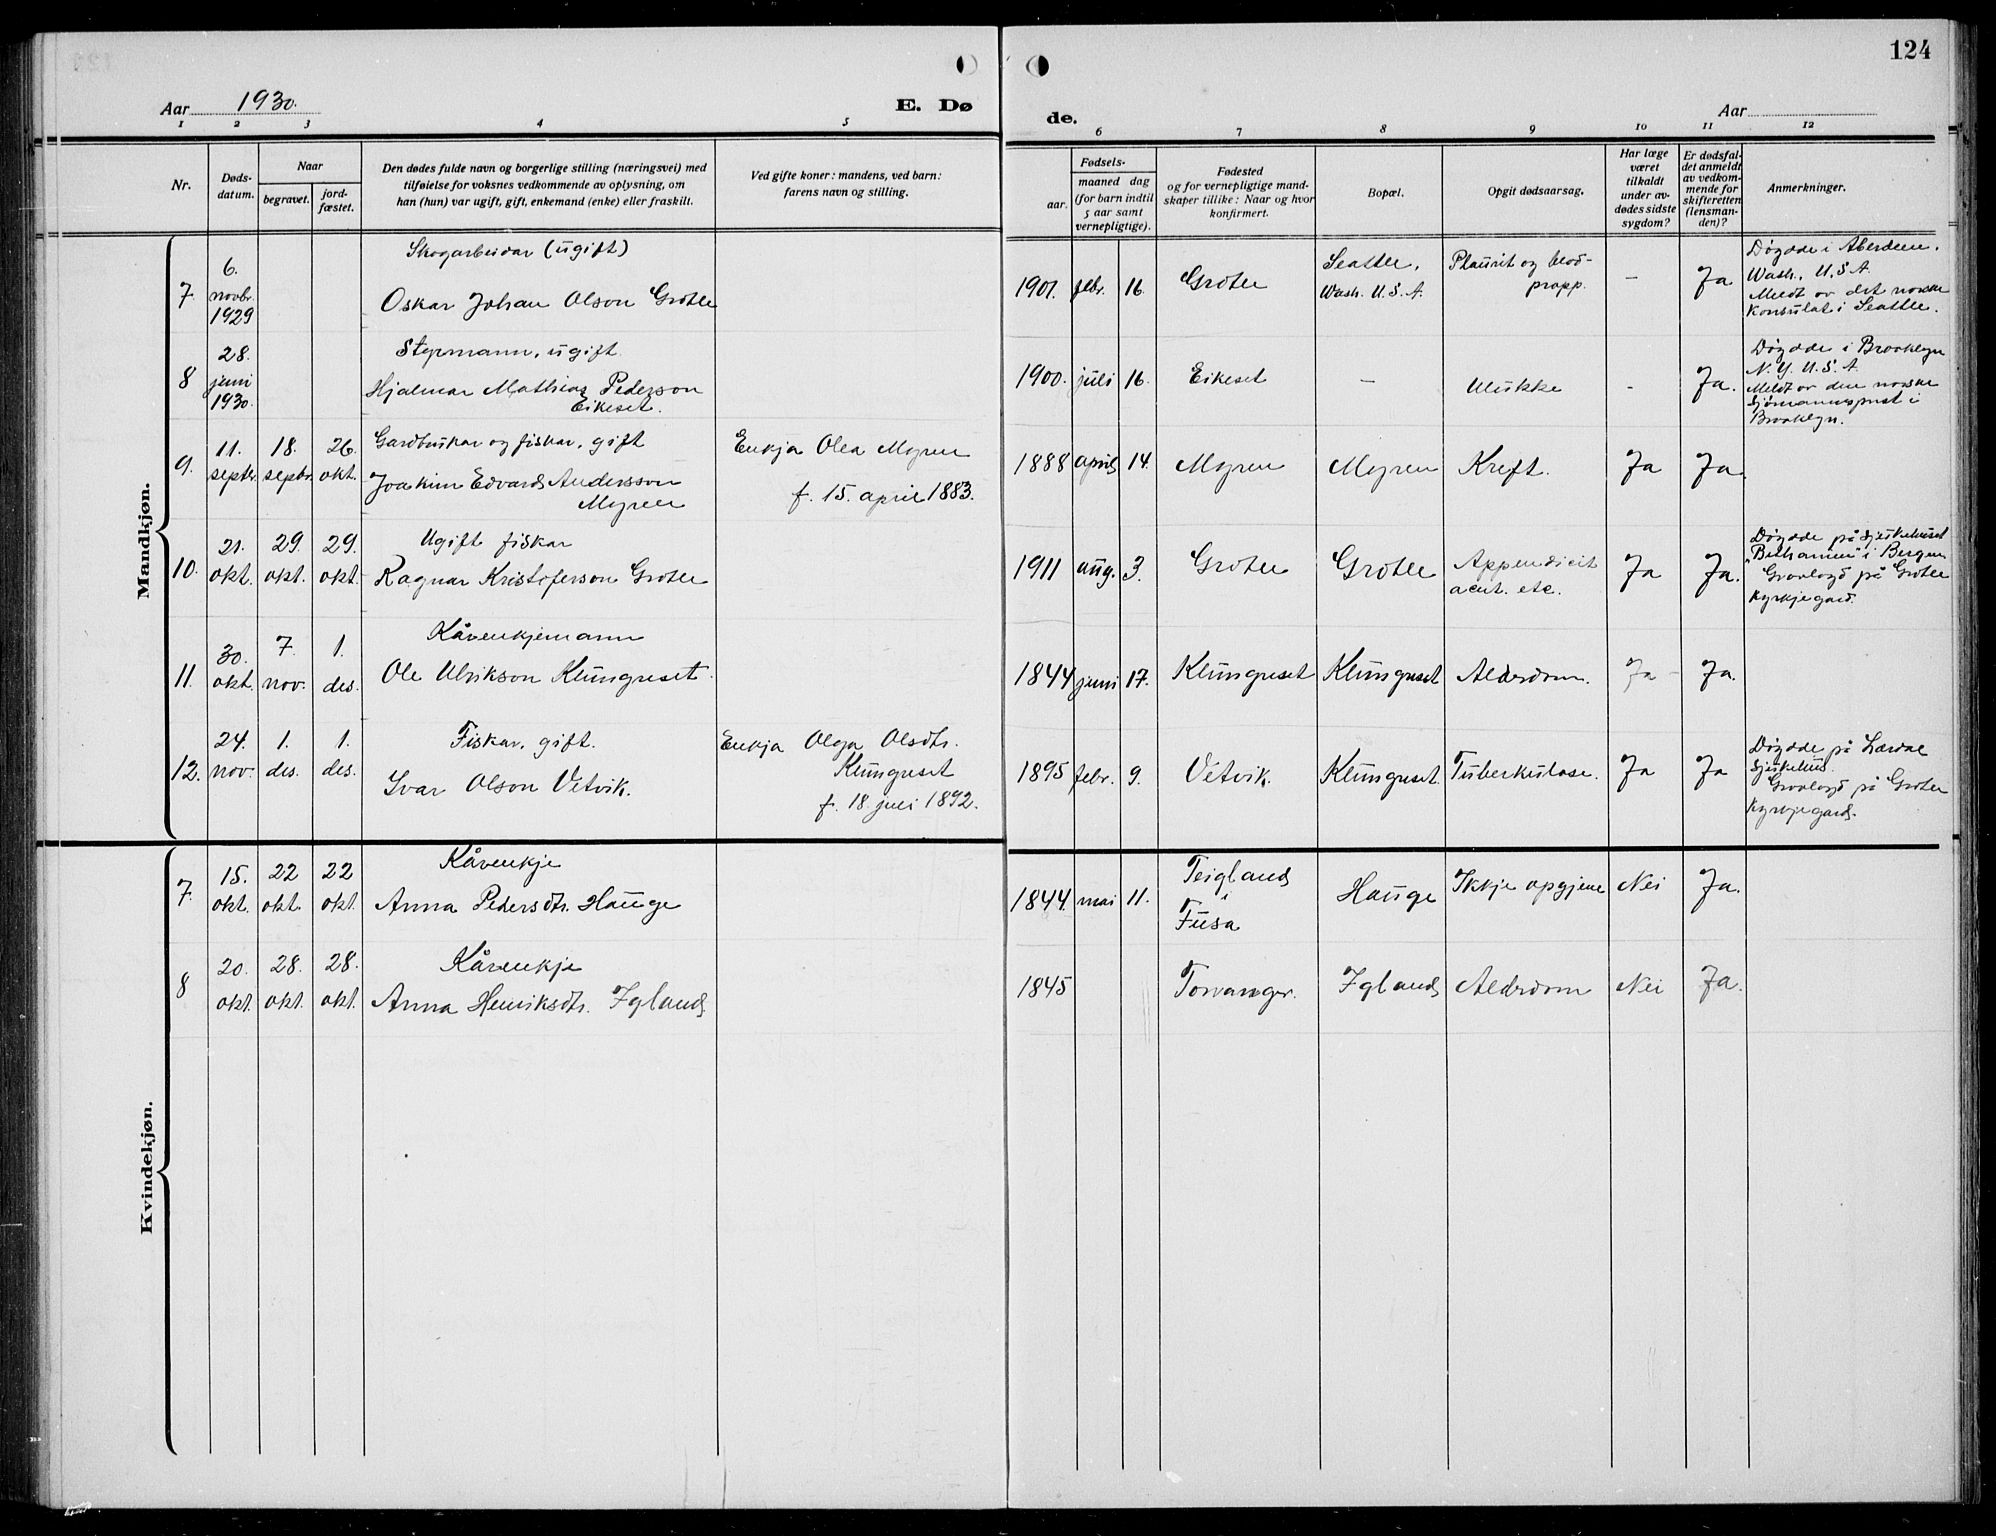 124
Aar 1930.
E. Dø
de.
Aar
1 2 3 4 5 6 7 8 9 10 11 12
Nr.
Døds-
datum.
Naar
begravet.
jord-
fæstet.
Den dødes fulde navn og borgerlige stilling (næringsvei) med
tilføielse for voksnes vedkommende av oplysning, om
han (hun) var ugift, gift, enkemand (enke) eller fraskilt.
Ved gifte koner: mandens, ved barn:
farens navn og stilling.
Fødsels-
aar.
maaned dag
(for barn indtil
5 aar samt
vernepligtige).
Fødested
og for vernepligtige mand-
skaper tillike: Naar og hvor
konfirmert.
Bopæl.
Opgit dødsaarsag.
Har læge
været
tilkaldt
under av-
dødes sidste
sygdom?
Er dødsfal-
det anmeldt
av vedkom-
mende for
skifteretten
(lensman-
den)?
Anmerkninger.
Mandkjøn.
7.
6.
novbr.
1929
Skogarbeidar (ugift)
Oskar Johan Olson Grotle
1901. febr. 16.
Grotle
Seattle,
Wash. U.S.A.
Plaurit og blod-
propp.
-
Ja
Døydde i Aberdeen.
Wash. U.S.A.
Meldt av det norske
konsulat i Seattle.
8
28.
juni
1930.
Styrmann, ugift.
Hjalmar Mathias Pederson
Eikeset.
1900. juli 16.
Eikeset
-
Ulukke
-
Ja.
Døydde i Brooklyn
N.Y. U.S.A.
Meldt av den norske
sjømannsprest i
Brooklyn.
9.
11.
septbr.
18.
septbr.
26.
okt.
Gardbrukar og fiskar, gift
Joakim Edvard Andersson
Myren
Enkja Olea Myren
f. 15. april 1883.
1888 april 14.
Myren
Myren
Kreft.
Ja
Ja.
10.
21.
okt.
29.
okt.
29.
okt.
Ugift fiskar
Ragnar Kristoferson Grotle
1911 aug. 3.
Grotle
Grotle
Appendicit
acut. etc.
Ja
Ja.
Døydde på sjukehuset
"Bethanien" i Bergen
Gravlagd på Grotle
kyrkjegard.
11.
30.
okt.
7.
nov.
1.
des.
Kårenkjemann
Ole Ulrikson Klungreset.
1844 juni 17.
Klungreset
Klungreset
Alderdom.
Ja -
Ja.
12.
24.
nov.
1.
des.
1.
des.
Fiskar, gift.
Ivar Olson Vetvik.
Enkja Olga Olsdtr.
Klungreset
f. 18. juli 1892.
1895 febr. 9.
Vetvik.
Klungreset.
Tuberkulose.
Ja
Ja
Døydde på Lærdal
sjukehus.
Gravlagd på Grotle
kyrkjegard.
Kvindekjøn.
7.
15.
okt.
22
okt.
22
okt.
Kårenkje
Anna Pedersdtr. Hauge
1844. mai 11.
Teigland
i
Fusa
Hauge
Ikkje opgjeve
Nei
Ja.
8
20.
okt.
28.
okt.
28.
okt.
Kårenkje
Anna Henriksdtr. Igland.
1845
Torvanger.
Igland
Alderdom
Nei
Ja.